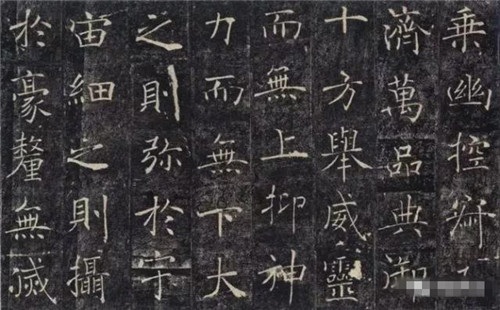 乘幽控寂
濟萬品典御
十方舉威靈
而無上抑神
力而無下大
之則弥於宇
宙細之則攝
於豪釐無滅